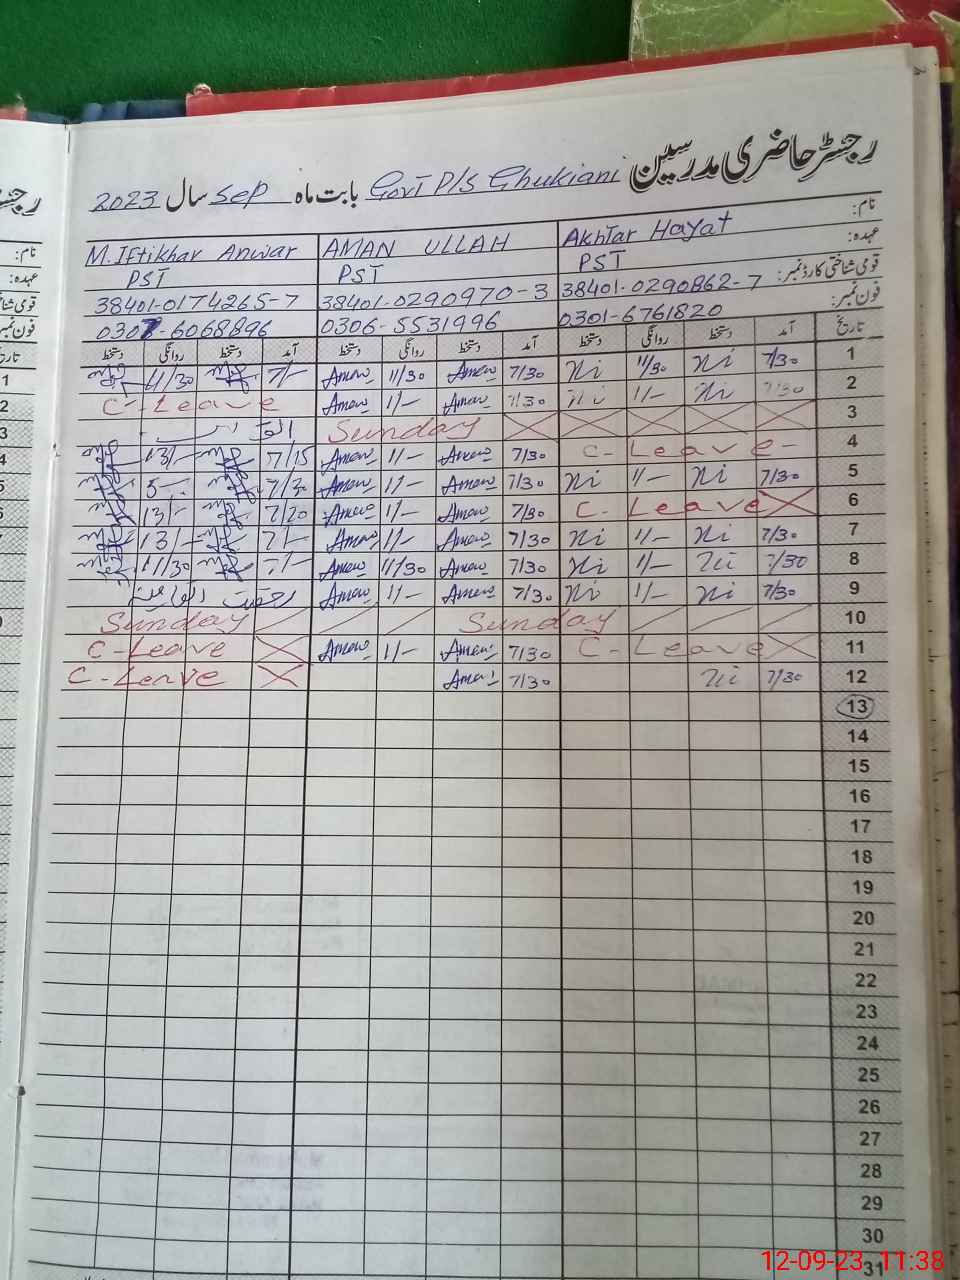 رجسٹر حاضری مدرسین Govt P/S Chukiani بابت ماہ Sep سال 2023
نام: Akhtar Hayat AMAN ULLAH M. Iftikhar Anwar
عہدہ: PST PST PST
قومی شناختی کارڈ نمبر: 38401-0290862-7 38401-0290970-3 38401-0174265-7
فون نمبر: 0301-6761820 0306-5531996 0307-6068896
تاریخ آمد دستخط روانگی دستخط آمد دستخط روانگی دستخط آمد دستخط روانگی دستخط
1 7/30 Ni 11/30 Ni 7/30 Aman 11/30 Aman 7/- 11/30
2 7/30 Ni 11/- Ni 7/30 Aman 11/- Aman C-Leave
3 Sunday
4 C-Leave 7/30 Aman 11/- Aman 7/15 13/-
5 7/30 Ni 11/- Ni 7/30 Aman 11/- Aman 7/30
6 C-Leave 7/30 Aman 11/- Aman 7/20 13/-
7 7/30 Ni 11/- Ni 7/30 Aman 11/- Aman 7/- 13/-
8 7/30 Ni 11/- Ni 7/30 Aman 11/30 Aman 7/- 11/30
9 7/30 Ni 11/- Ni 7/30 Aman 11/- Aman رخصت
10 Sunday Sunday
11 C-Leave 7/30 Aman 11/- Aman C-Leave
12 7/30 Ni 7/30 Aman C-Leave
13
14
15
16
17
18
19
20
21
22
23
24
25
26
27
28
29
30
31
12-09-23 11:38